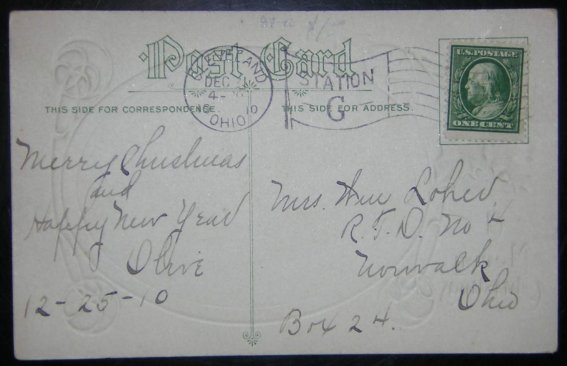 Post Card
CLEVELAND
DEC
4-
1910
OHIO
STATION
G
U.S. POSTAGE
ONE CENT
THIS SIDE FOR CORRESPONDENCE.
THIS SIDE FOR ADDRESS.
Merry Christmas
and
Happy New Year
Olive
12-25-10
Mrs. Wm
R.F.D. No
Norwalk
Ohio
Box 24.